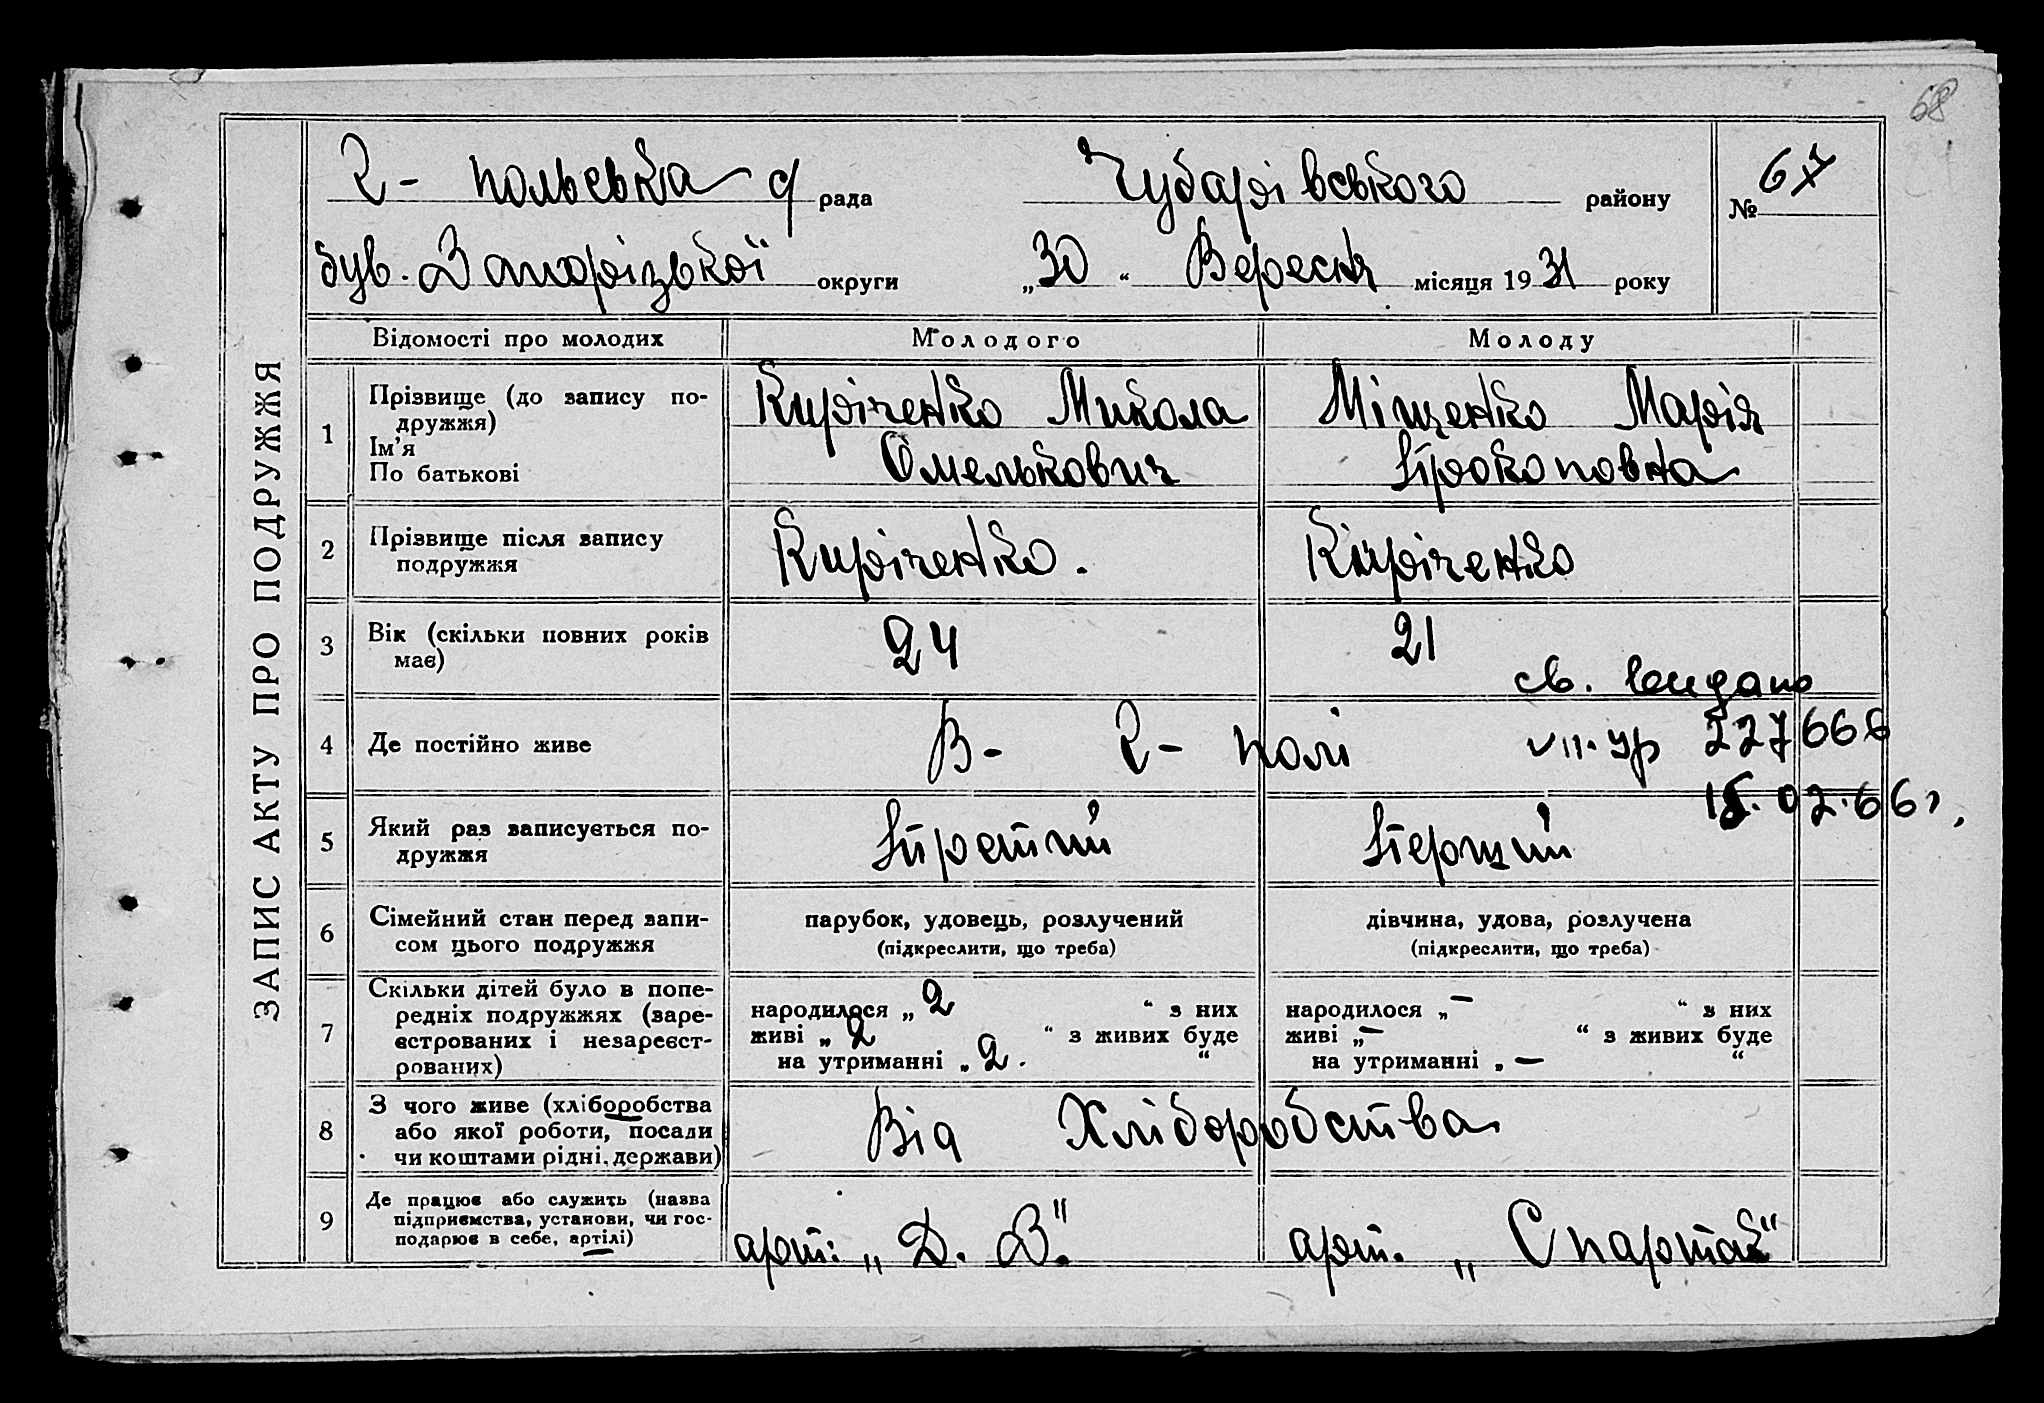 68
ЗАПИС АКТУ ПРО ПОДРУЖЖЯ
2- польська с/рада Чубарівського району № 67
був. Запорізької округи „30“ Вересня місяця 1931 року
Відомості про молодих Молодого Молоду
1 Прізвище (до запису по-
дружжя)
Ім'я
По батькові
Кирі́ченко Микола
Омелькович
Міщенко Марія
Прокоповна
2 Прізвище після запису
подружжя
Киріченко.
Киріченко
3 Вік (скільки повних років
має)
24
21
св. выдано
4 Де постійно живе
В- 2- полі
VII-УР 227666
15.02.66г.
5 Який раз записується по-
дружжя
Третій
Перший
6 Сімейний стан перед запи-
сом цього подружжя
парубок, удовець, розлучений
(підкреслити, що треба)
дівчина, удова, розлучена
(підкреслити, що треба)
7 Скільки дітей було в попе-
редніх подружжях (заре-
єстрованих і незареєст-
рованих)
народилося „ 2 “ з них
живі „ 2 “ з живих буде
на утриманні „ 2. “
народилося „ — “ з них
живі „ — “ з живих буде
на утриманні „ — “
8 З чого живе (хліборобства
або якої роботи, посади
чи коштами рідні, держави)
Від Хліборобства
9 Де працює або служить (назва
підприємства, установи, чи гос-
подарює в себе, артілі)
арт: „Д. В.“
арт. „Спартак“